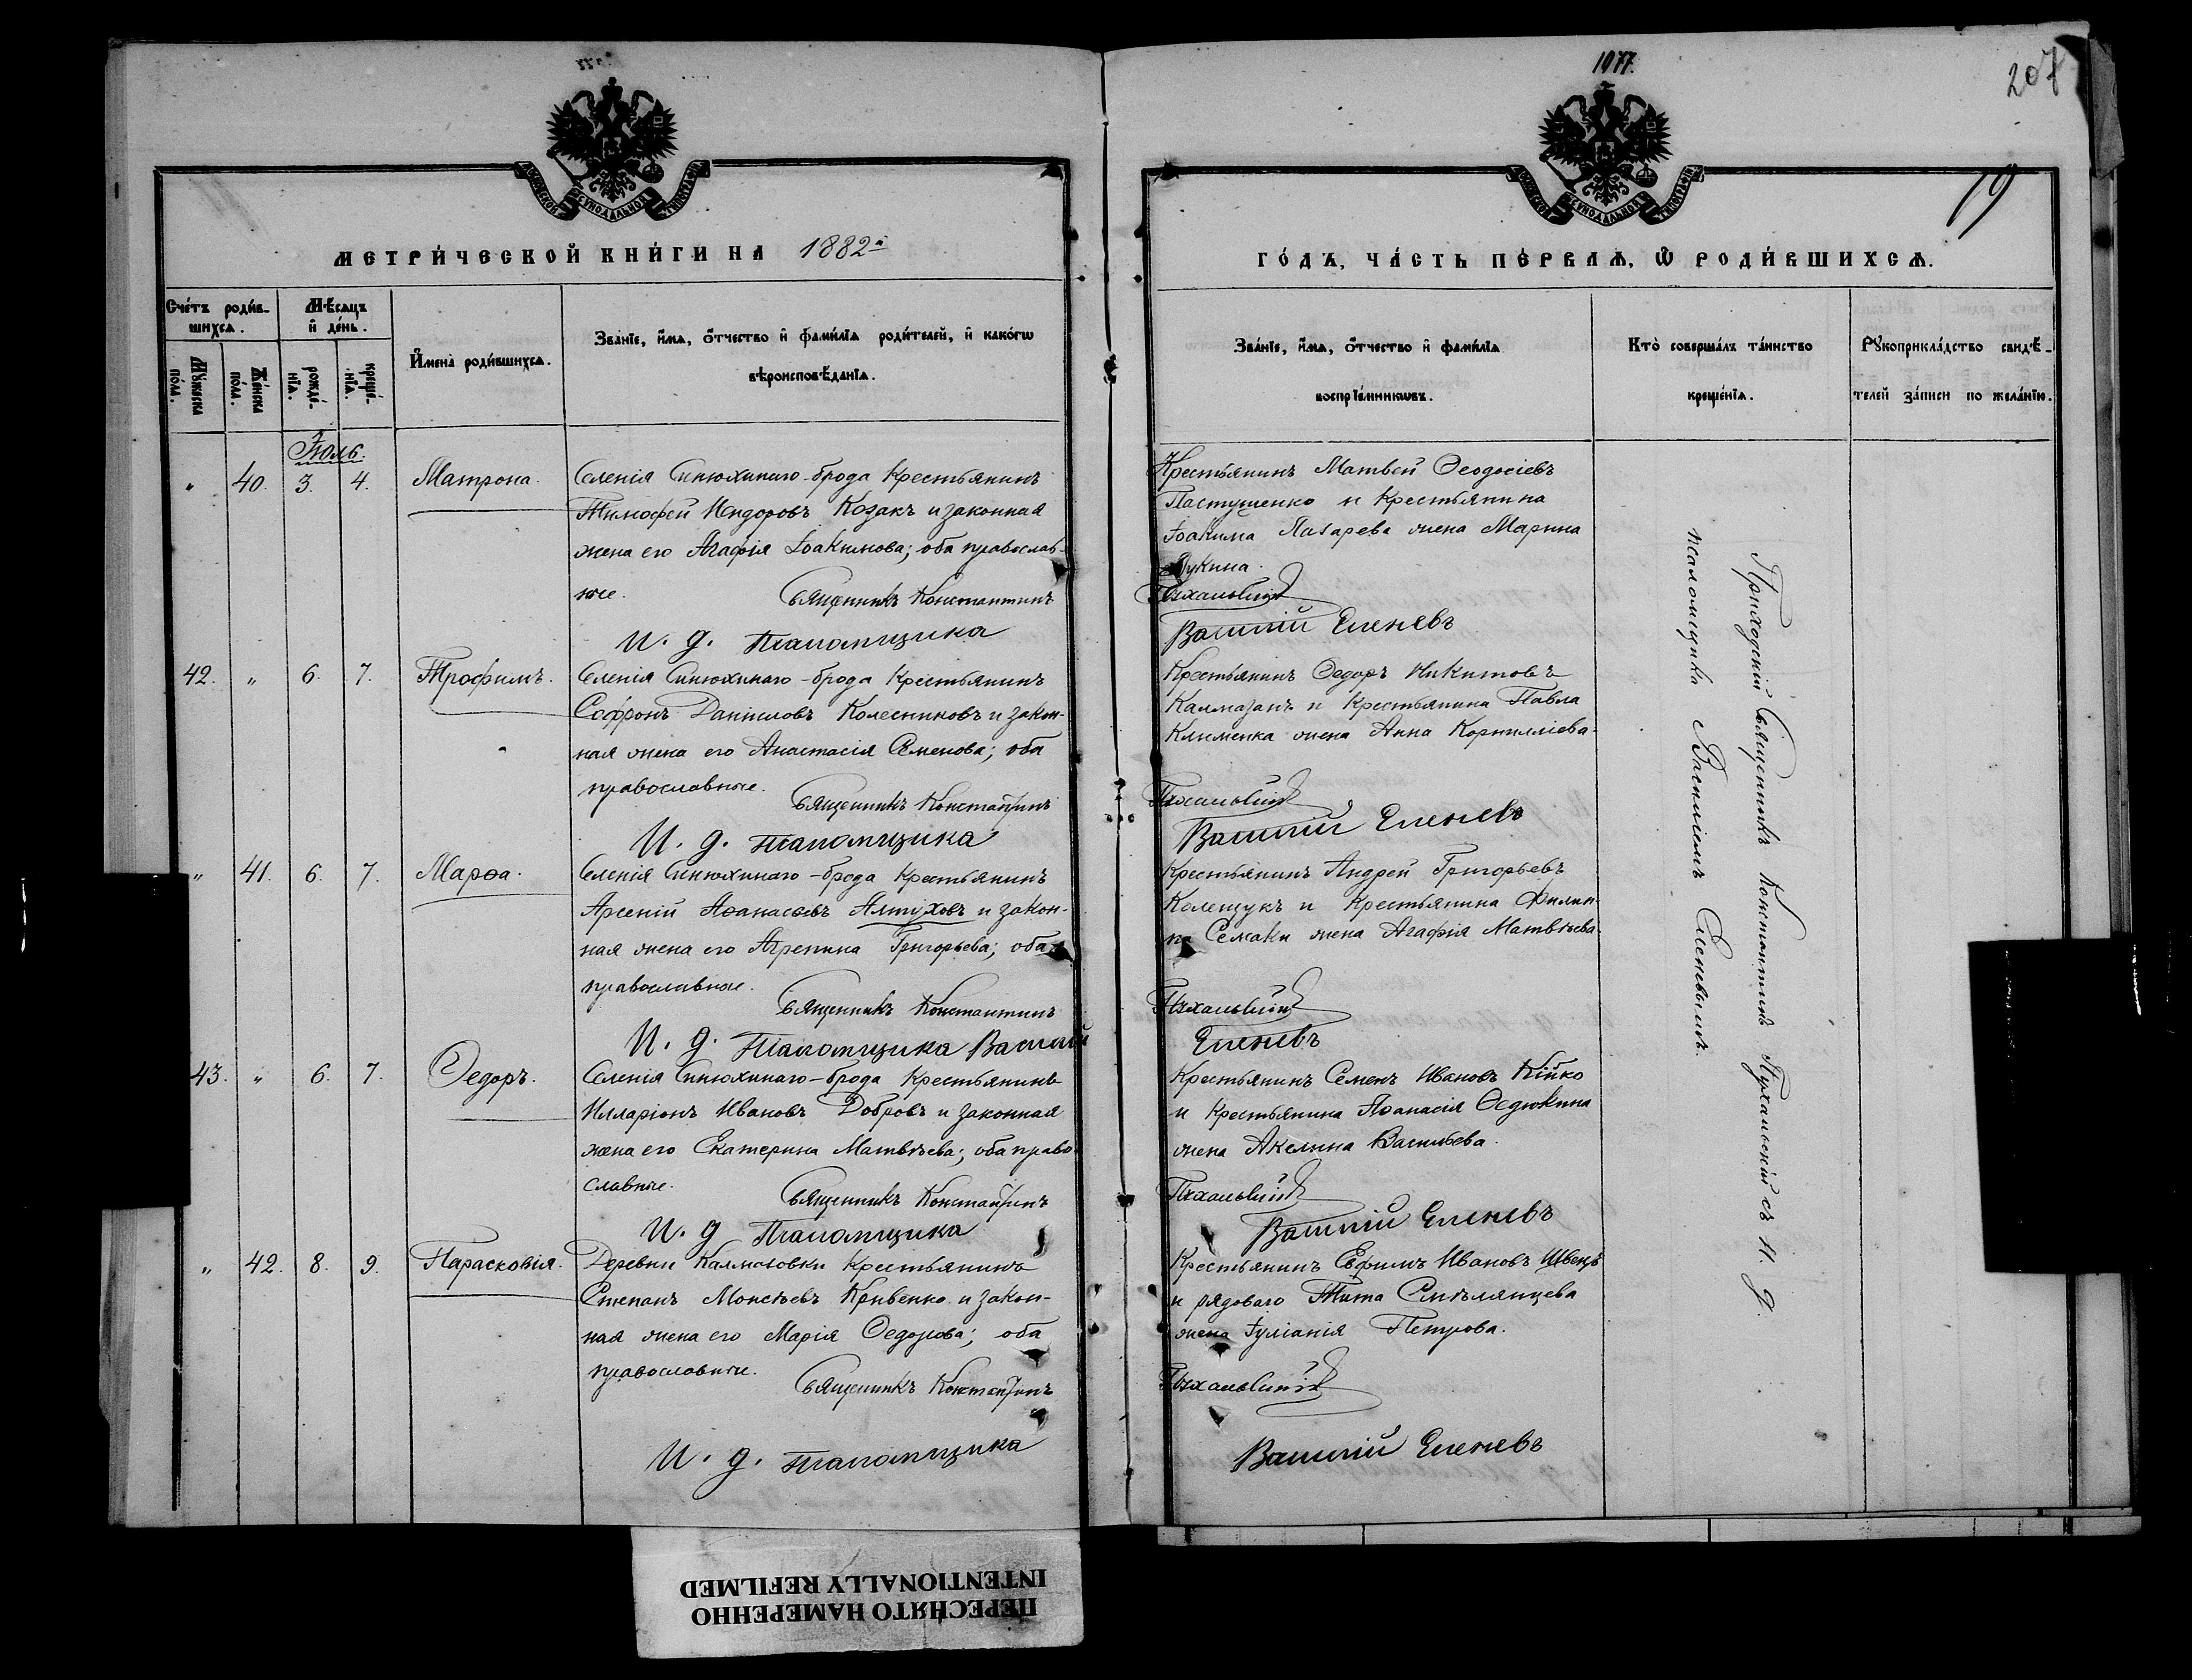 1077.
207
19
СѴНОДАЛЬНОЙ
СѴНОДАЛЬНОЙ
МЕТРИ́ЧЕСКОЙ КНИ́ГИ НА 1882й
ГО́ДЪ, ЧА́СТЬ ПЕ́РВАѦ, Ѿ РОДИ́ВШИХСѦ.
Сче́тъ роди́вшихсѧ.
Мꙋ́жеска по́ла.
Же́нска по́ла.
Мѣ́сѧцъ и҆ де́нь.
рожде́нїѧ.
креще́нїѧ.
И҆мена̀ роди́вшихсѧ.
Зва́нїе, и҆́мѧ, ѻ҆́тчество и҆ фами́лїѧ роди́телей, и҆ како́гѡ
вѣроисповѣ́данїѧ.
Зва́нїе, и҆́мѧ, ѻ҆́тчество и҆ фами́лїѧ
воспрїе́мникѡвъ.
Кто̀ соверша́лъ та́инство
креще́нїѧ.
Рꙋкоприкла́дство свидѣ́-
телей за́писи по жела́нїю.
Июль.
" 40. 3. 4. Матрона.
Селенія Синюхинаго-брода Крестьянинъ
Тимофей Исидоровъ Козакъ и законная
жена его Агафія Іоакимова; оба православ-
ные. Священникъ Константинъ
И. д. Псаломщика
Крестьянинъ Матвей Ѳеодосіевъ
Пастушенко и Крестьянина
Іоакима Лазарева жена Марина
Лукина.
Пухальскій
Василій Еленевъ
42. " 6. 7. Трофимъ.
Селенія Синюхинаго-брода Крестьянинъ
Софронъ Даниловъ Колесниковъ и закон-
ная жена его Анастасія Семенова; оба
православные. Священникъ Константинъ
И. д. Псаломщика
Крестьянинъ Ѳедоръ Никитовъ
Калмазанъ и Крестьянина Павла
Клименка жена Анна Корнилліева.
Пухальскій
Василій Еленевъ
" 41. 6. 7. Марѳа.
Селенія Синюхинаго-брода Крестьянинъ
Арсеній Аѳанасьевъ Алтуховъ и закон-
ная жена его Агрепина Григорьева; оба
православные. Священникъ Константинъ
И. д. Псаломщика Василій
Крестьянинъ Андрей Григорьевъ
Колещукъ и Крестьянина Филип-
па Семаки жена Агафія Матвѣева.
Пухальскій
Еленевъ
43. " 6. 7. Ѳедоръ.
Селенія Синюхинаго-брода Крестьянинъ
Илларіонъ Ивановъ Добровъ и законная
жена его Екатерина Матвѣева; оба право
славные. Священникъ Константинъ
И. д Псаломщика
Крестьянинъ Семенъ Ивановъ Кійко
и Крестьянина Аѳанасія Ѳедюкина
жена Акелина Васильева.
Пухальскій
Василій Еленевъ
" 42. 8. 9. Парасковія.
Деревни Калмазовки Крестьянинъ
Степанъ Моисѣевъ Кривенко и закон-
ная жена его Марія Ѳедорова; оба
православные. Священникъ Константинъ
И. д. Псаломщика
Крестьянинъ Ефимъ Ивановъ Швецъ
и рядоваго Тита Смѣлянцева
жена Іуліанія Петрова.
Пухальскій
Василій Еленевъ
Приходскій Священникъ Константинъ Пухальскій съ и. д.
псаломщика Василіемъ Еленевымъ.
ПЕРЕСНЯТО НАМЕРЕННО
INTENTIONALLY REFILMED